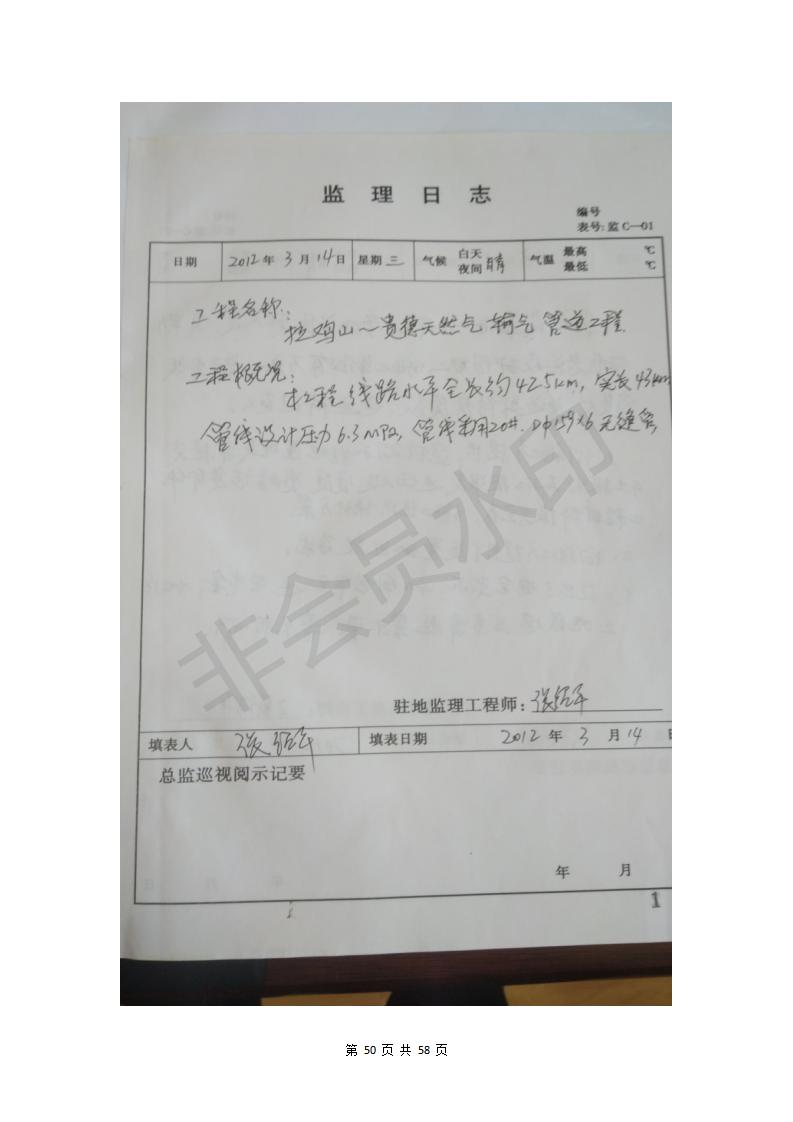 监理日志
编号
表号:监C—01
日期 2012年3月14日 星期三 气候 白天 夜间 晴 气温 最高 ℃ 最低 ℃
工程名称:
拉鸡山~贵德天然气输气管道工程
工程概况:
本工程线路水平全长约42.5km,实长43km
管线设计压力6.3MPa,管线采用20#. Dφ159×6无缝管
非会员水印
驻地监理工程师:
填表人 填表日期 2012年3月14日
总监巡视阅示记要
年 月
1
第 50 页 共 58 页